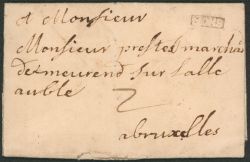 A Monsieur
Monsieur prostes marchan
demeurend sur lalle
auble
2
abruxelles